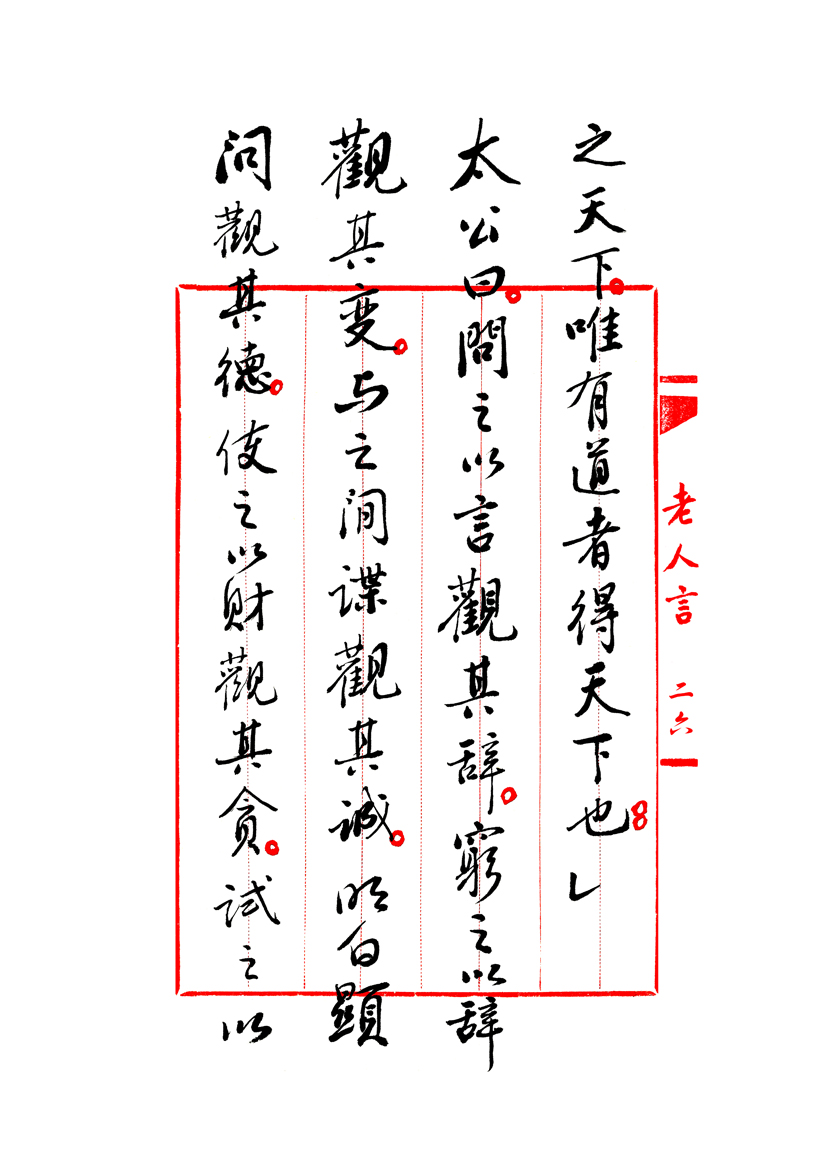 之天下。唯有道者得天下也。
太公曰。問之以言觀其辞。窮之以辞
觀其变。与之间谍觀其诚。明白顯
问觀其德。使之以财觀其貪。试之以
老人言 二六